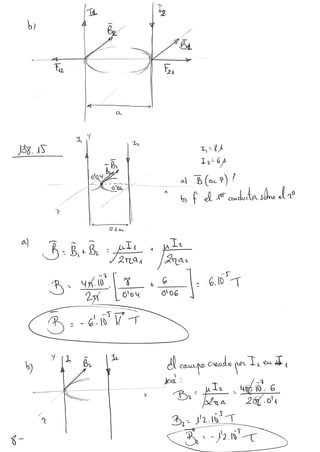 b)
I₁ I₂
B₂ B₁
F₁₂ F₂₁
a
198.15
I₁ Y I₂
B₁
B₂
0'04
0'06
x
z
0'1m
I₁=8A
I₂=6A
a) B (en P)?
b) f el 1er conductor sobre el 2º
a) B = B₁ + B₂ = μI₁/2πa₁ + μI₂/2πa₂
B = 4π·10⁻⁷/2π · [8/0'04 + 6/0'06] = 6·10⁻⁵ T
B = -6'·10⁻⁵ K T
b) Y I₁ B₂ I₂
x
z
El campo creado por I₂ en I₁
será:
B₂ = μI₂/2πa = 4π·10⁻⁷·6/2π·0'1
B₂ = 1'2·10⁻⁵ T
B₂ = -1'2·10⁻⁵ T
8-